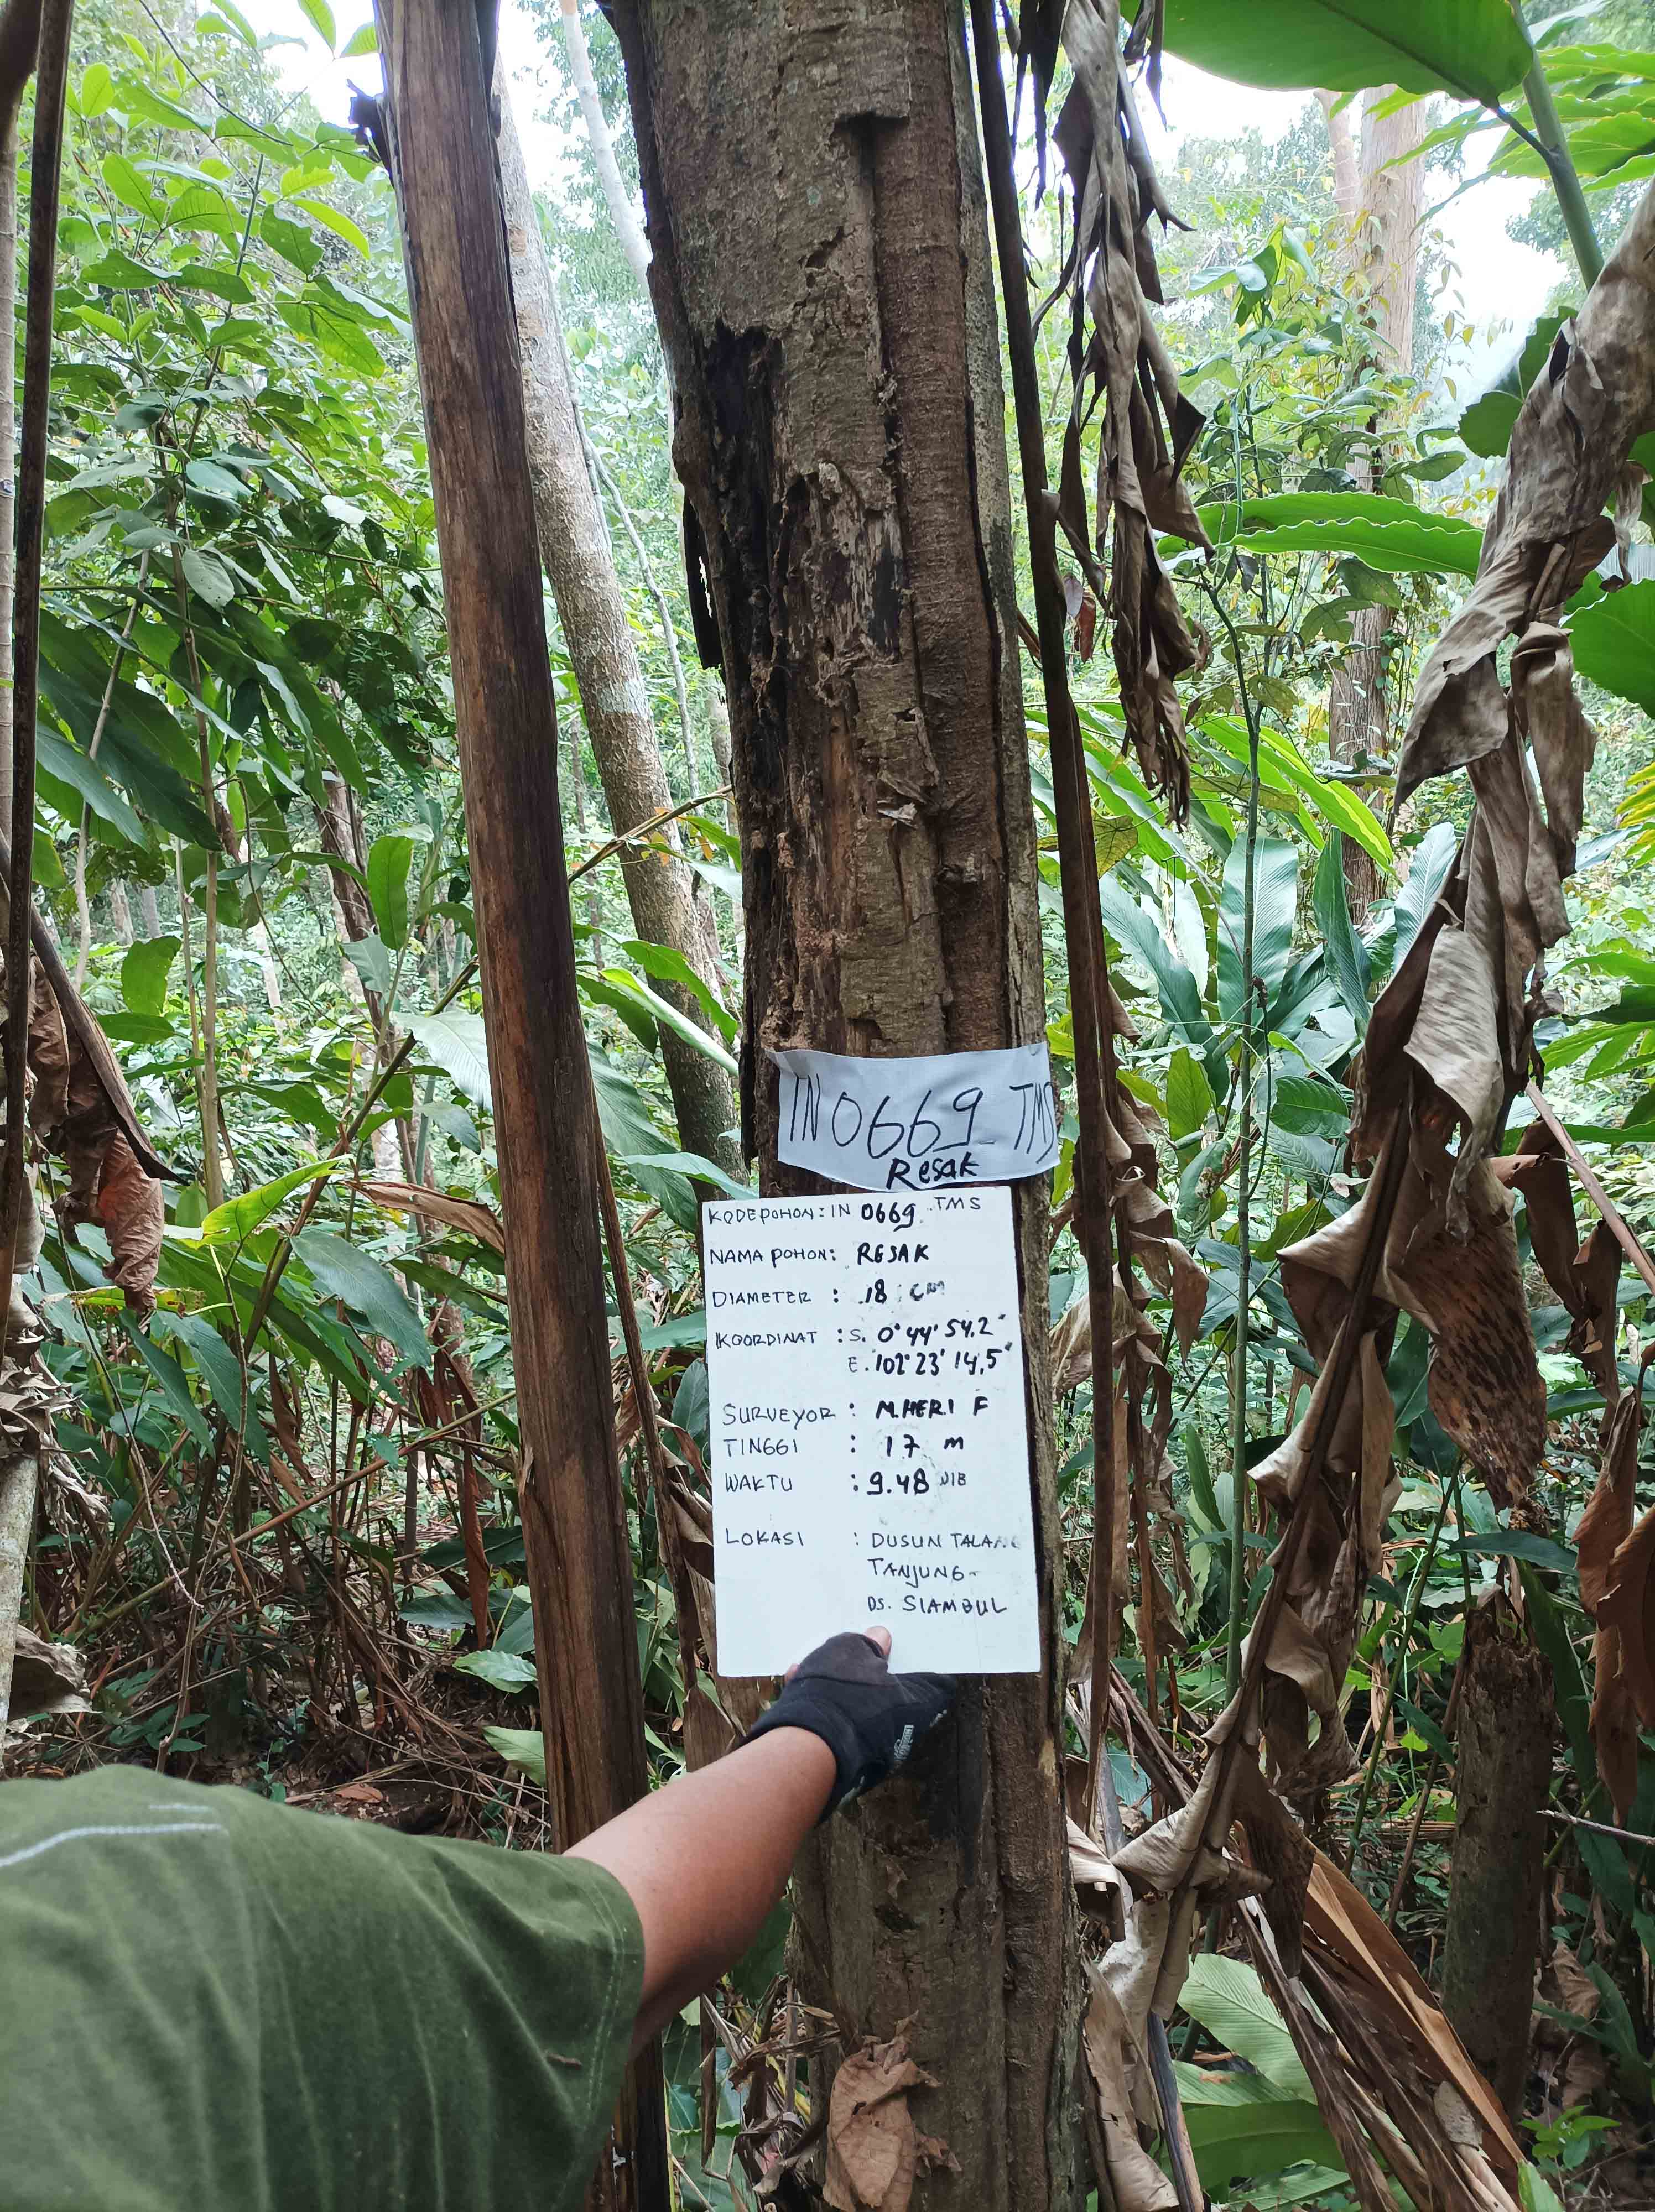 IN 0669 TMS
Resak
KODE POHON: IN 0669 TMS
NAMA POHON: RESAK
DIAMETER : 18 CM
KOORDINAT : S. 0° 44' 54,2"
E. 102° 23' 14,5"
SURVEYOR : M.HERI F
TINGGI : 17 M
WAKTU : 9.48 WIB
LOKASI : DUSUN TALANG
TANJUNG
DS. SIAMBUL